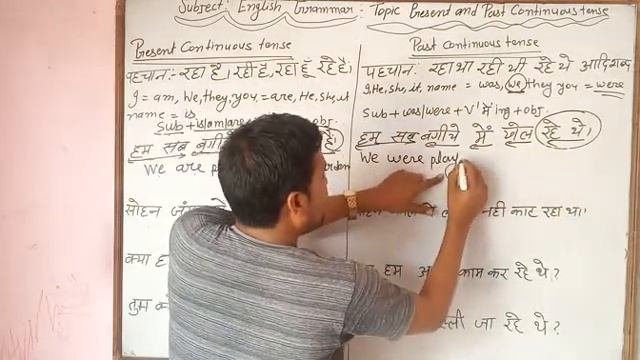 Subject: English Grammar: Topic Present and Past Continuous tense
Present Continuous tense
पहचान:- रहा है। रही है, रहा हूँ रहे है।
I = am, We, they, you, = are, He, she, it
name = is
Sub + is/am/are
हम सब बगी
We are p
सोहन जं
क्या ह
तुम क
Past Continuous tense
पहचान: रहा था रही थी रहे थे आदि शब्द
I, He, she, it, name = was, we, they you = were
Sub + was/were + V' में ing + obj.
हम सब बगीचे में खेल रहे थे।
We were play
नही काट रहा था।
हम काम कर रहे थे?
जा रहे थे?